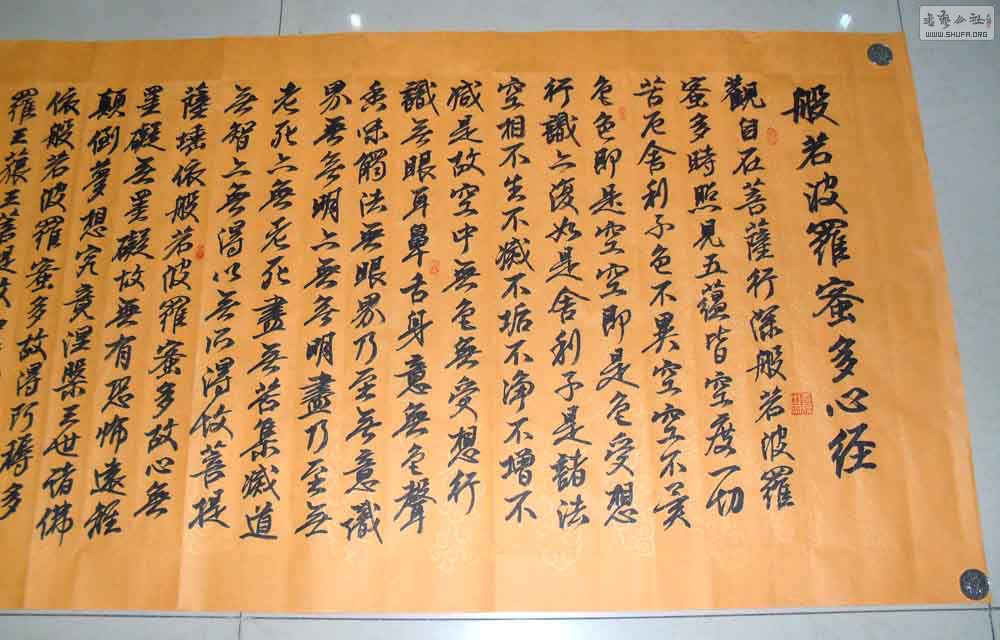 般若波羅蜜多心経
觀自在菩薩行深般若波羅
蜜多時照見五蕴皆空度一切
苦厄舍利子色不異空空不異
色色即是空空即是色受想
行識亦復如是舍利子是諸法
空相不生不滅不垢不净不增不
减是故空中無色無受想行
識无眼耳鼻舌身意無色聲
香味觸法无眼界乃至无意識
界無无明亦無无明盡乃至無
老死亦無老死盡無苦集滅道
无智亦無得以无所得故菩提
薩埵依般若波羅蜜多故心無
罣礙無罣礙故無有恐怖遠離
顛倒夢想究竟涅槃三世諸佛
依般若波羅蜜多故得阿耨多
羅三藐三菩提故
書藝公社
WWW.SHUFA.ORG